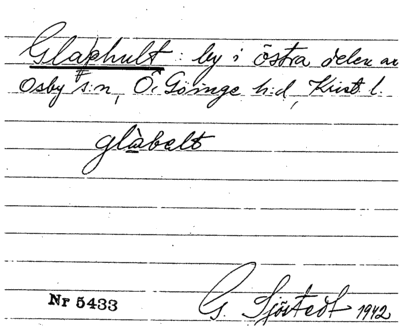 Glaphult: by i östra delen av
Osby s:n, Ö. Göinge h:d, Krist. l.
glàbelt
Nr 5433
G. Sjöstedt 1942